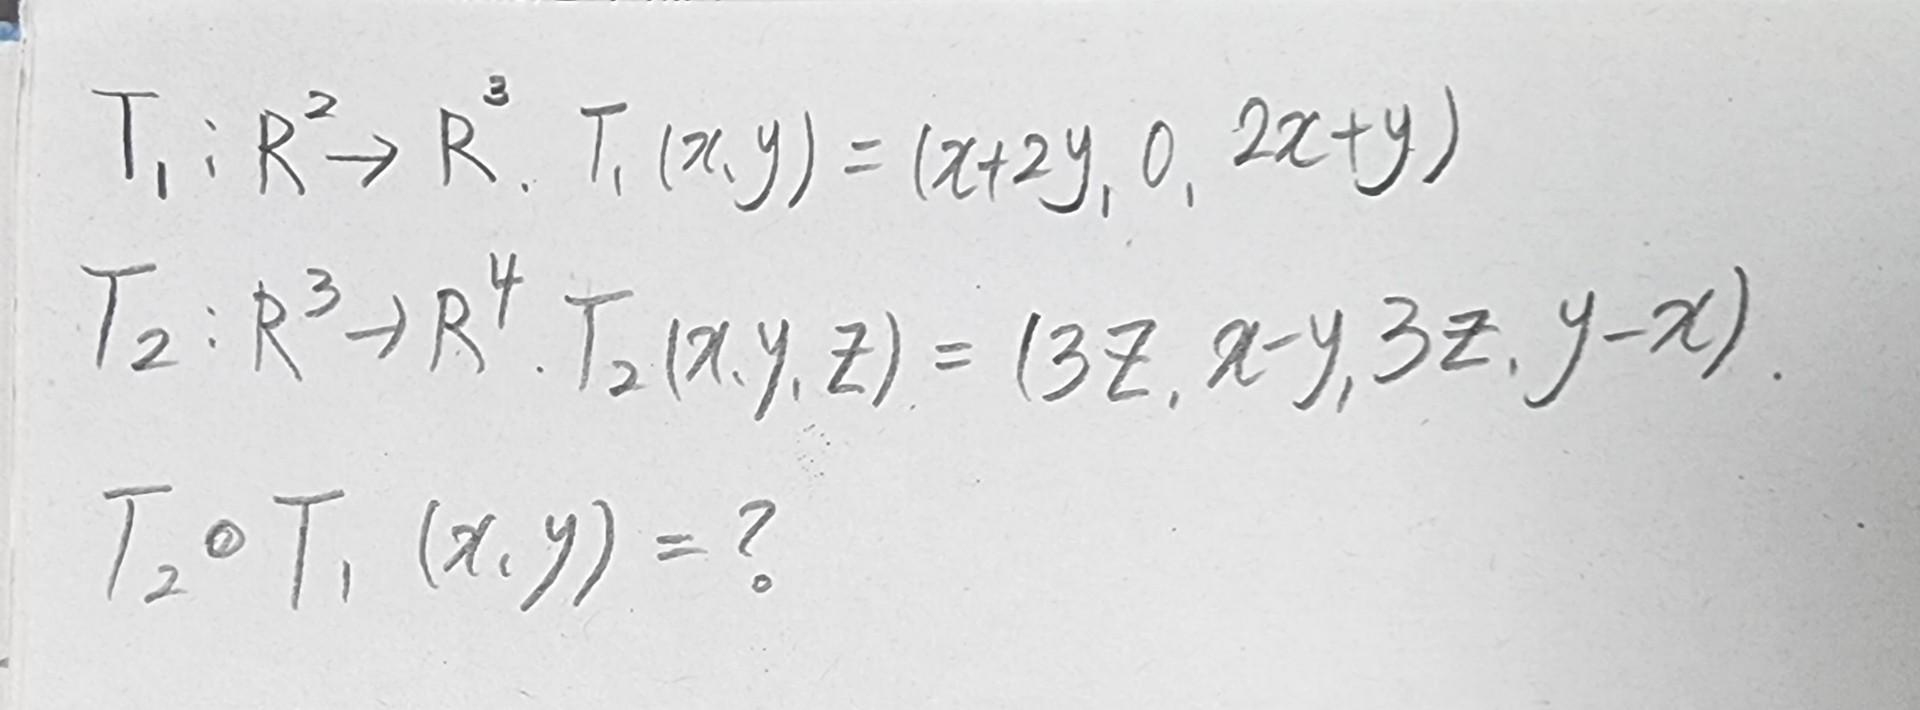 T₁ : R² → R³. T₁ (x, y) = (x+2y, 0, 2x+y)
T₂ : R³ → R⁴. T₂ (x, y, z) = (3z, x-y, 3z, y-x).
T₂ ∘ T₁ (x, y) = ?